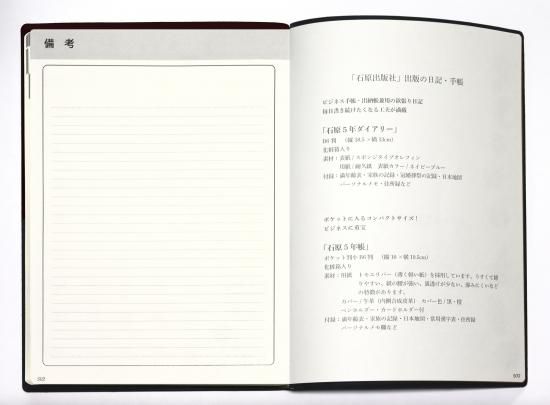 備 考
「石原出版社」出版の日記・手帳
ビジネス手帳・出納帳兼用の欲張り日記
毎日書き続けたくなる工夫が満載
「石原5年ダイアリー」
化粧箱入り
素材：表紙/スポンジタイプオレフィン
用紙/耐久紙 表紙カラー/ネイビーブルー
付録：満年齢表・家族の記録・冠婚葬祭の記録・日本地図
パーソナルメモ・住所録など
ポケットに入るコンパクトサイズ！
ビジネスに重宝
「石原5年帳」
化粧箱入り
素材：用紙 トモエリバー（薄く軽い紙）を採用しています。うすくて綴
りやすい、紙の腰が強い、裏透けが少ない、滲みにくいなど
の特徴があります。
カバー/牛革（内側合成皮革） カバー色/黒・橙
ペンホルダー・カードホルダー付
付録：満年齢表・家族の記録・日本地図・常用漢字表・住所録
パーソナルメモ欄など